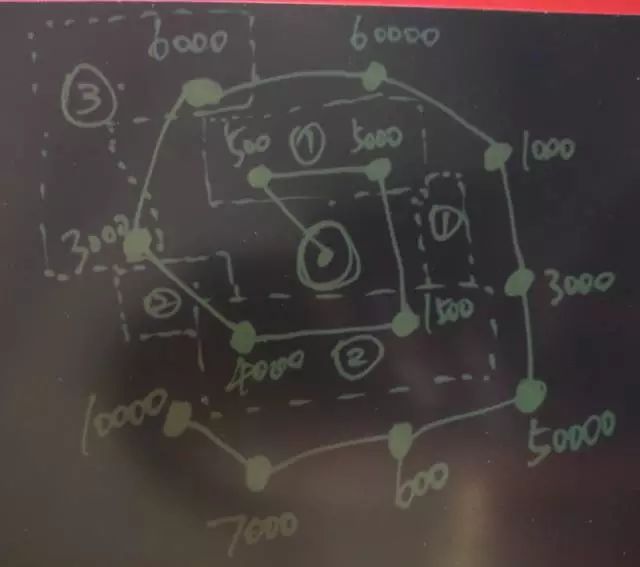 6000
60000
③
500
①
5000
1000
3000
①
3000
②
1500
4000
②
10000
50000
600
7000